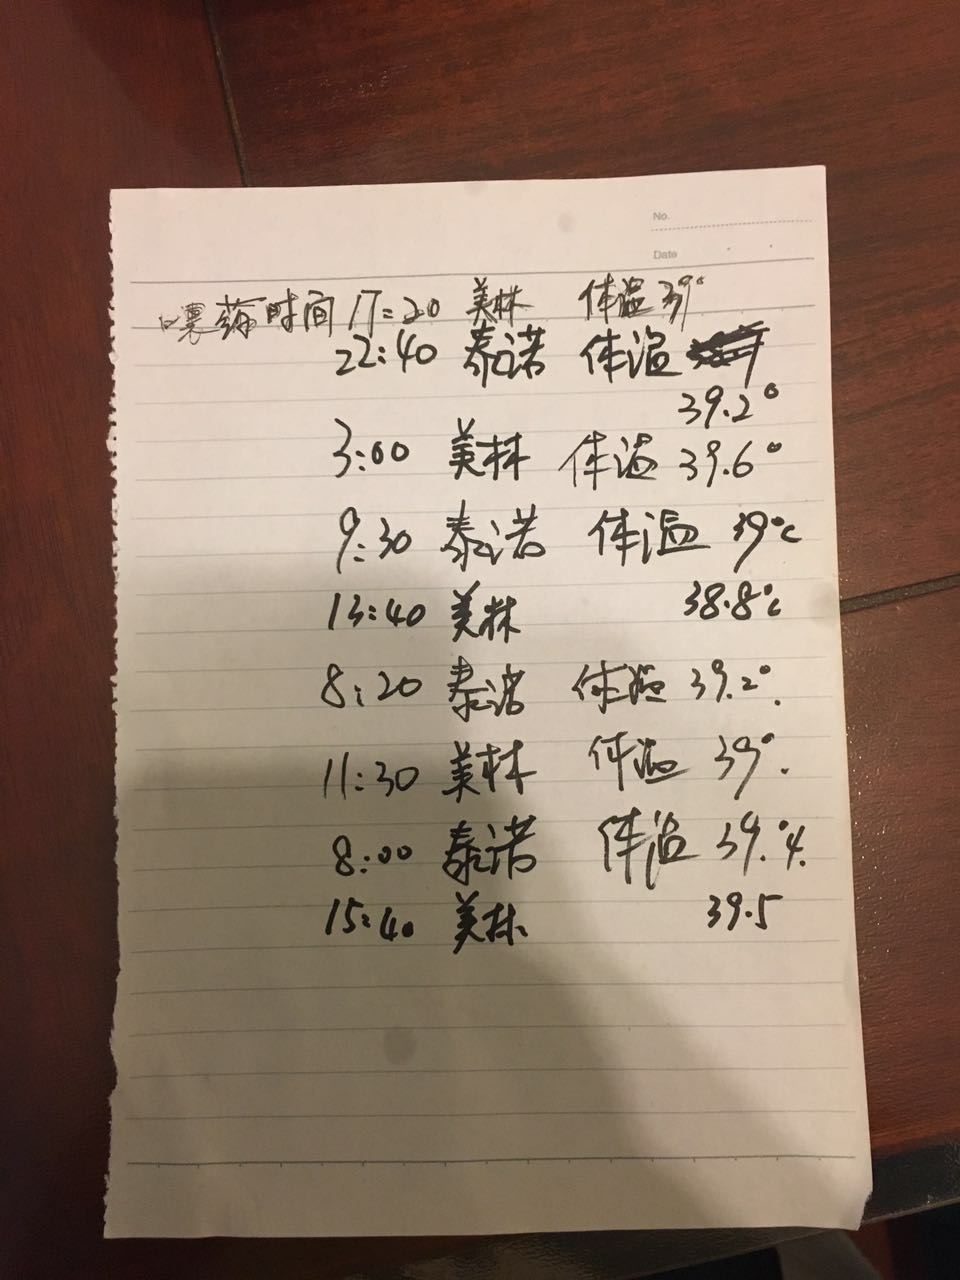 No.
Date
喂药时间 17:20 美林 体温 39°
22:40 泰诺 体温
39.2°
3:00 美林 体温 39.6°
9:30 泰诺 体温 39℃
13:40 美林 38.8℃
8:20 泰诺 体温 39.2°.
11:30 美林 体温 39°.
8:00 泰诺 体温 39.°4.
15:40 美林 39.5